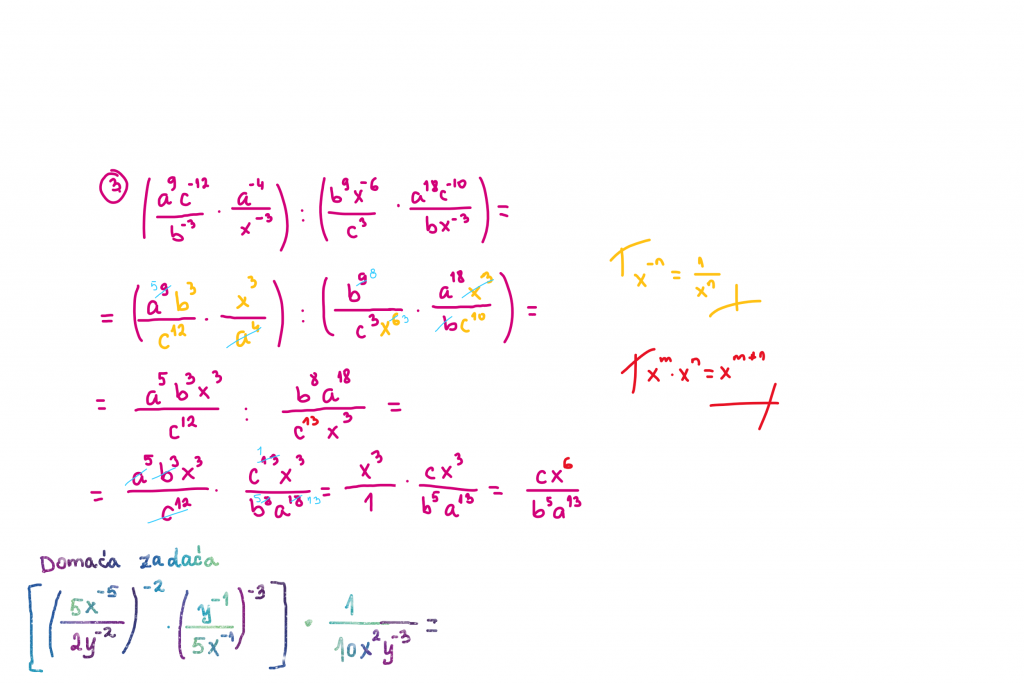 ③ (a⁹c⁻¹²/b⁻³ · a⁻⁴/x⁻³) : (b⁹x⁻⁶/c³ · a¹⁸c⁻¹⁰/bx⁻³) =
= (a⁹ ⁵ b³/c¹² · x³/a⁴) : (b⁹ ⁸/c³x⁶ ³ · a¹⁸x³/bc¹⁰) =
x⁻ⁿ = 1/xⁿ
= a⁵b³x³/c¹² : b⁸a¹⁸/c¹³x³ =
xᵐ · xⁿ = xᵐ⁺ⁿ
= a⁵b³x³/c¹² · c¹³ ¹ x³/b⁸ ⁵ a¹⁸ ¹³ = x³/1 · cx³/b⁵a¹³ = cx⁶/b⁵a¹³
Domaća zadaća
[(5x⁻⁵/2y⁻²)⁻² · (y⁻¹/5x⁻¹)⁻³] · 1/10x²y⁻³ =